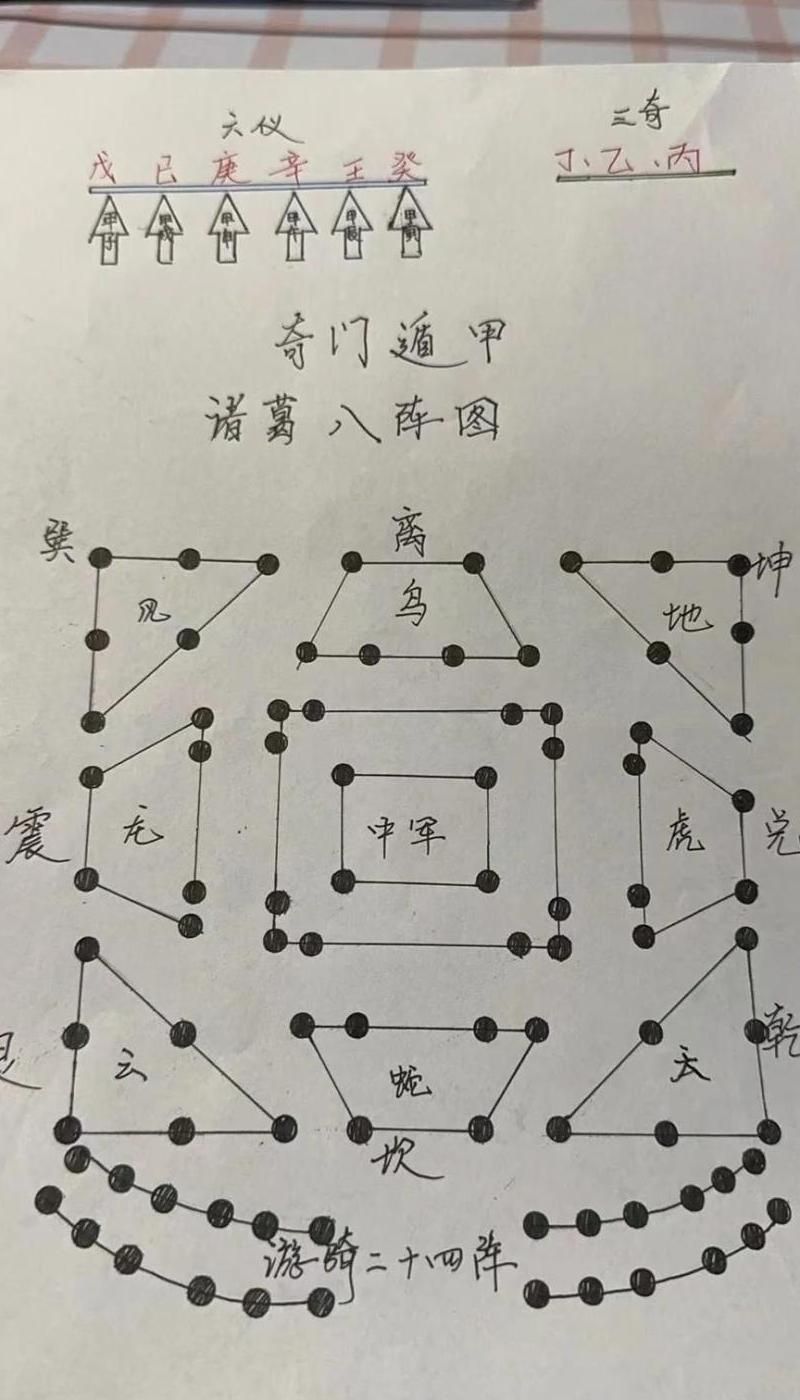 六仪 三奇
戊 己 庚 辛 壬 癸 丁、乙、丙
甲子 甲戌 甲申 甲午 甲辰 甲寅
奇门遁甲
诸葛八阵图
巽 离 坤
风 鸟 地
震 龙 中军 虎 兑
艮 云 蛇 天 乾
坎
游骑二十四阵